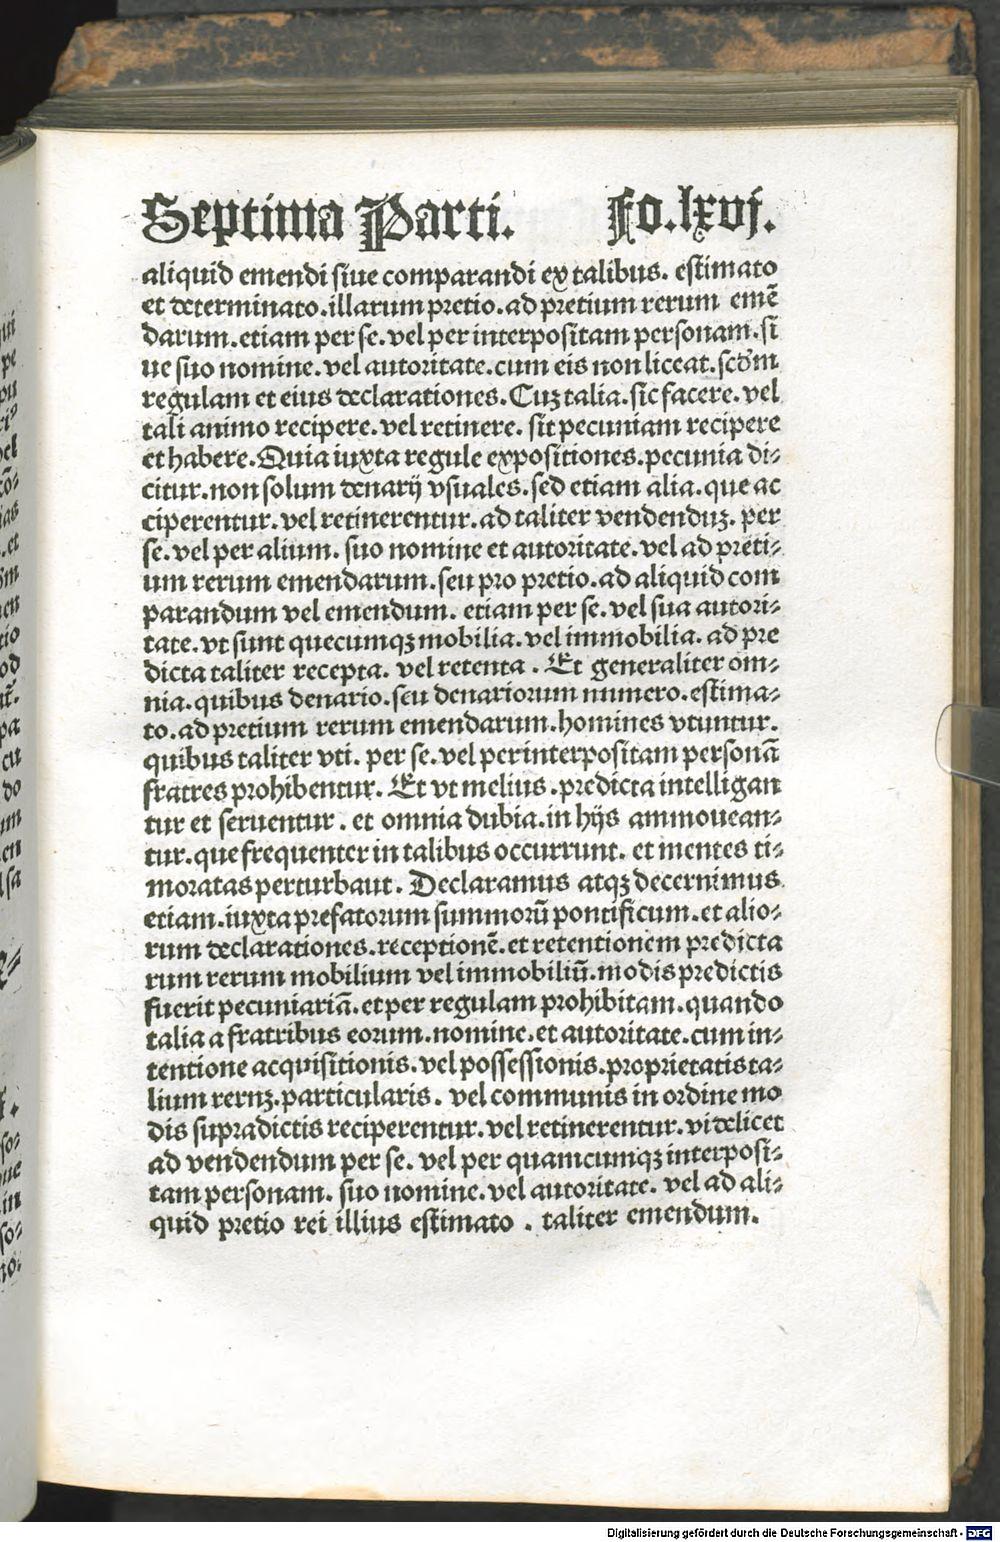 Septima Parti. Fo.lxvj.
aliquid emendi siue comparandi ex talibus. estimato
et determinato.illarum pretio.ad pretium rerum emē
darum.etiam per se.vel per interpositam personam.si
ue suo nomine.vel autoritate.cum eis non liceat.scd̄m
regulam et eius declarationes.Cuꝫ talia.sic facere.vel
tali animo recipere.vel retinere. sit pecuniam recipere
et habere.Quia iuxta regule expositiones.pecunia di⸗
citur.non solum denarij vsuales.sed etiam alia.que ac
ciperentur.vel retinerentur.ad taliter vendenduꝫ. per
se.vel per alium. suo nomine et autoritate.vel ad preti⸗
um rerum emendarum.seu pro pretio.ad aliquid com
parandum vel emendum. etiam per se.vel sua autori⸗
tate.vt sunt quecumqꝫ mobilia.vel immobilia.ad pre
dicta taliter recepta. vel retenta . Et generaliter om⸗
nia.quibus denario.seu denariorum numero.estima⸗
to.ad pretium rerum emendarum.homines vtuntur.
quibus taliter vti. per se.vel per interpositam personā
fratres prohibentur. Et vt melius .predicta intelligan
tur et seruentur . et omnia dubia.in hijs ammouean⸗
tur.que frequenter in talibus occurrunt. et mentes ti⸗
moratas perturbaut. Declaramus atqꝫ decernimus
etiam.iuxta prefatorum summorū pontificum.et alio⸗
rum declarationes.receptionē.et retentionem predicta
rum rerum mobilium vel immobiliū.modis predictis
fuerit pecuniariā.et per regulam prohibitam.quando
talia a fratribus eorum.nomine.et autoritate.cum in⸗
tentione acquisitionis.vel possessionis.proprietatis ta⸗
lium rernꝫ.particularis. vel communis in ordine mo
dis supradictis reciperentur.vel retinerentur.videlicet
ad vendendum per se. vel per quamcumqꝫ interposi⸗
tam personam. suo nomine.vel autoritate. vel ad ali⸗
quid pretio rei illius estimato . taliter emendum.
Digitalisierung gefördert durch die Deutsche Forschungsgemeinschaft - DFG